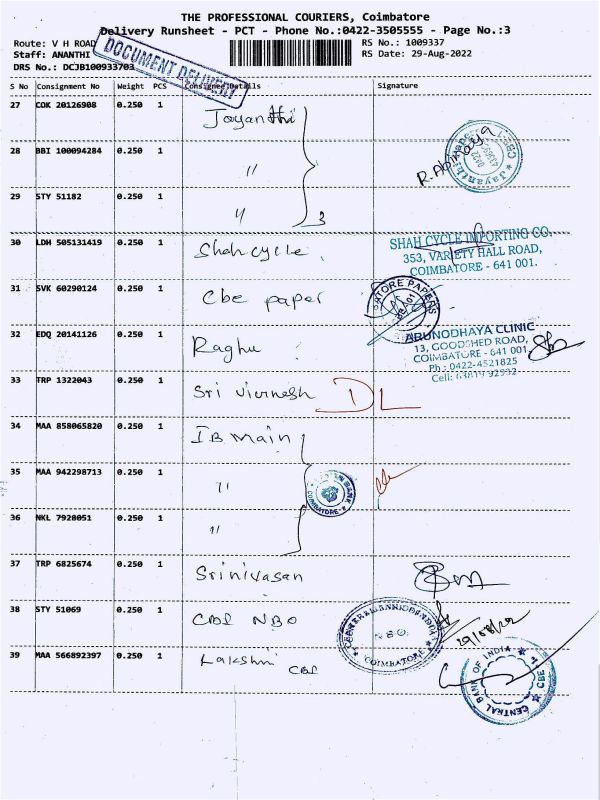 THE PROFESSIONAL COURIERS, Coimbatore
Delivery Runsheet - PCT - Phone No.:0422-3505555 - Page No.:3
Route: V H ROAD
RS No.: 1009337
Staff: ANANTHI
RS Date: 29-Aug-2022
DRS No.: DCJB100933703
DOCUMENT DELIVERY
S No Consignment No Weight PCS Consignee Details Signature
27 COK 20126908 0.250 1 Jayanthi
R. Abinaya
28 BBI 100094284 0.250 1 "
29 STY 51182 0.250 1 " 3
30 LDH 505131419 0.250 1 Shah cycle
SHAH CYCLE IMPORTING CO.
353, VARIETY HALL ROAD,
COIMBATORE - 641 001.
31 SVK 60290124 0.250 1 Cbe paper
32 EDQ 20141126 0.250 1 Raghu
ARUNODHAYA CLINIC
13, GOODSHED ROAD,
COIMBATORE - 641 001
Ph : 0422-4521825
Cell:
33 TRP 1322043 0.250 1 Sri DL
34 MAA 858065820 0.250 1 IB main
35 MAA 942298713 0.250 1 "
COIMBATORE
36 NKL 7928051 0.250 1 "
37 TRP 6825674 0.250 1 Srinivasan
38 STY 51069 0.250 1 CBE NBO
N.B.O.
COIMBATORE
29/08/22
39 MAA 566892397 0.250 1 Lakshmi CBE
CENTRAL BANK OF INDIA CBE